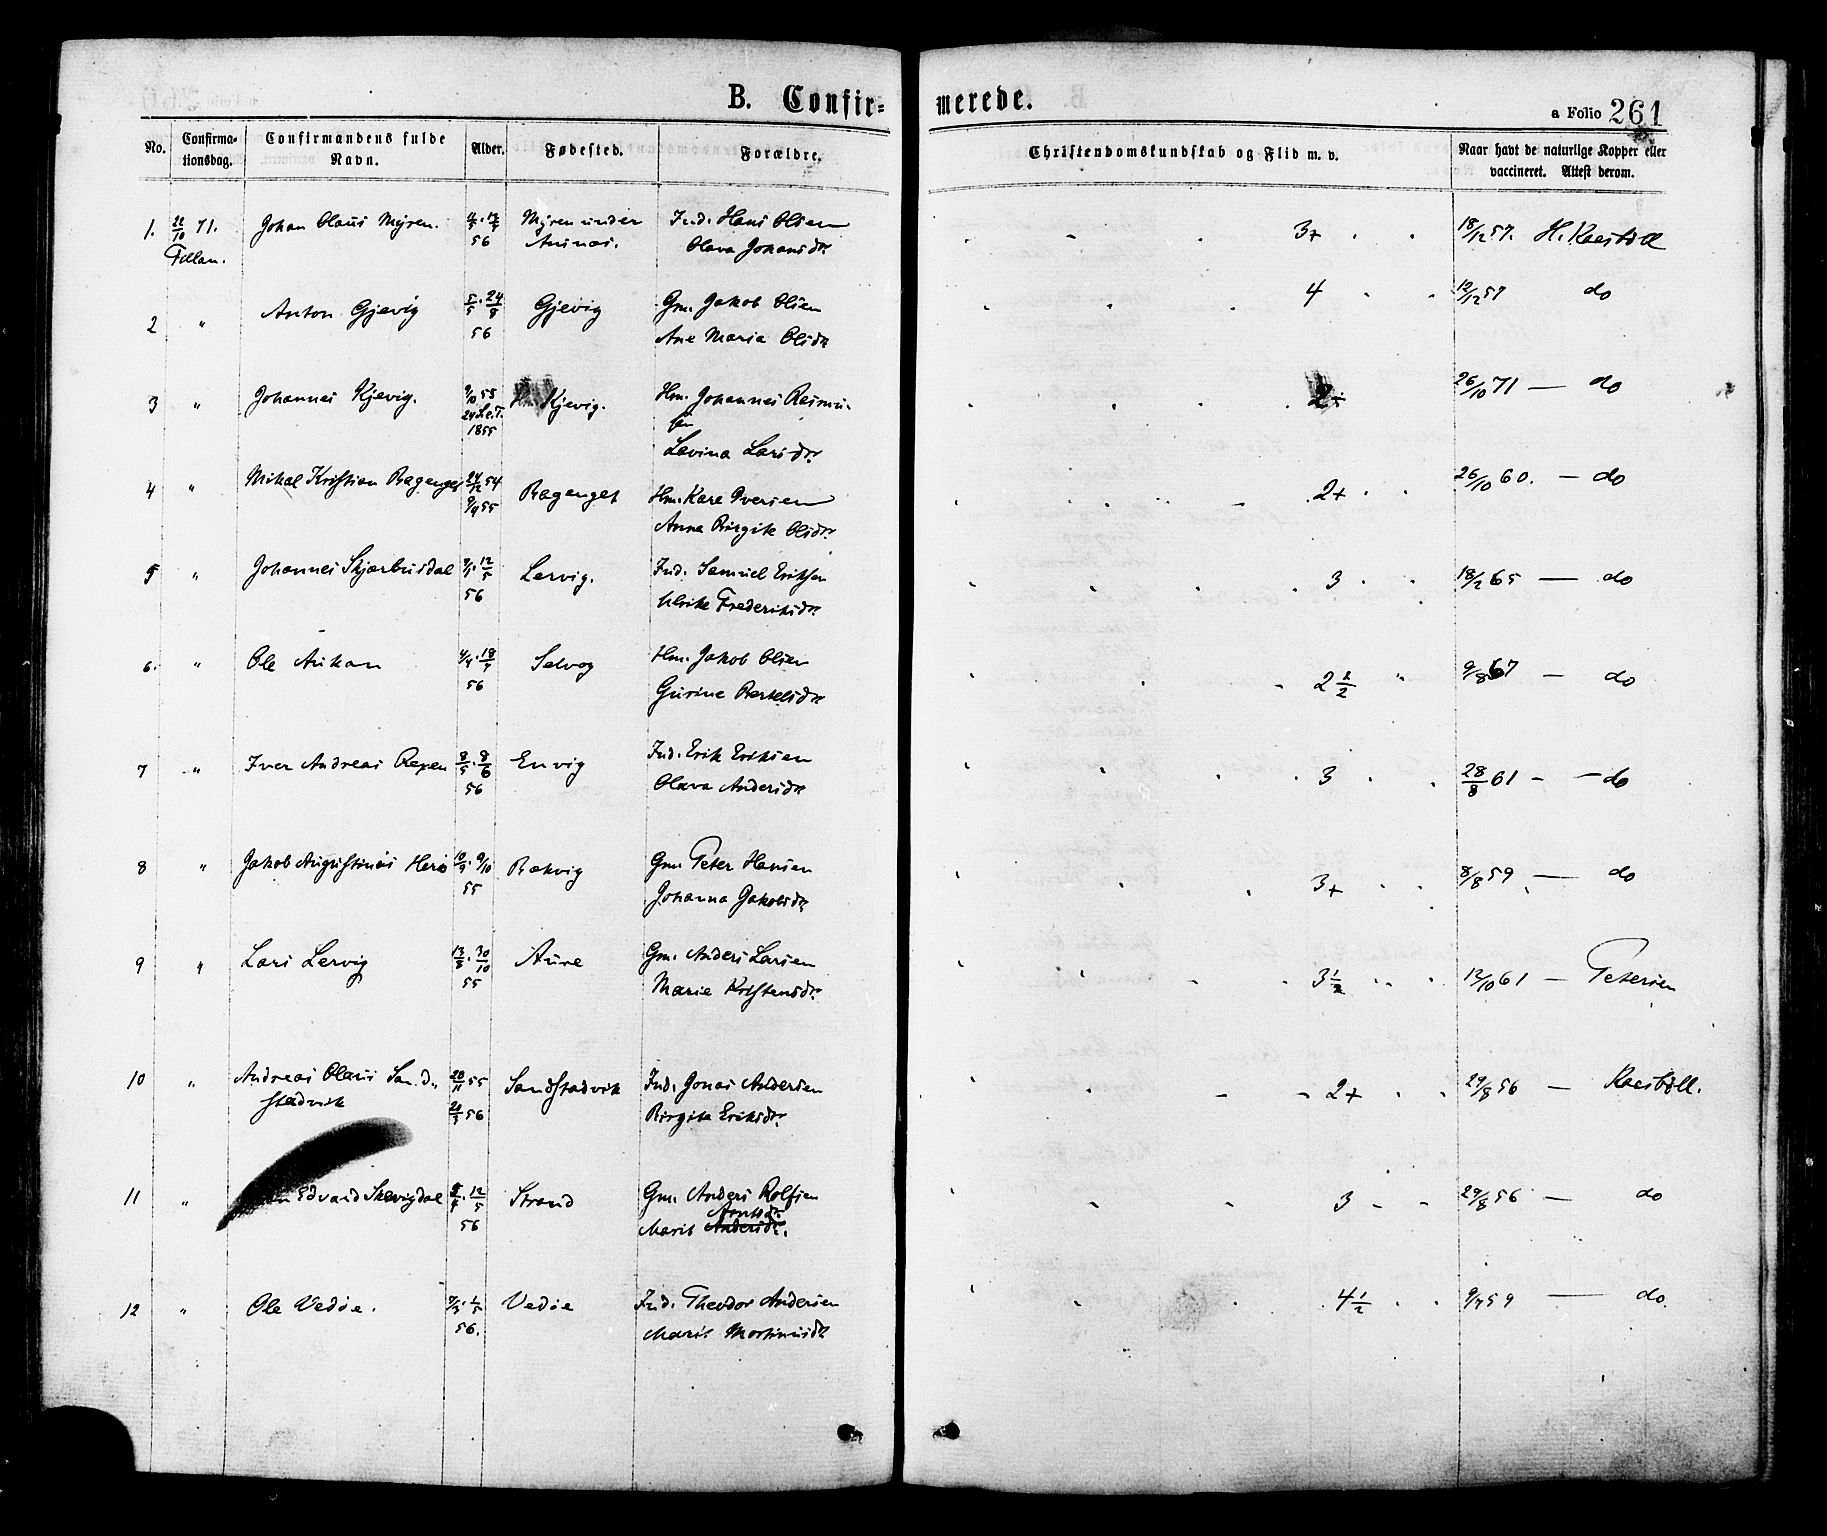 B. Confir-
merede.
a Folio 261
No.
Confirma-
tionsdag.
Confirmandens fulde
Navn.
Alder.
Fødested.
Forældre.
Christendomskundskab og Flid m. v.
Naar havt de naturlige Kopper eller
vaccineret. Attest derom.
1. 22/10 71. Johan Olaus Myren. Myren under Ind. Hans Olsen 3+ 18/12 57.
Fillan. 56 Olava Johansdr.
2 " Anton Gjevig 5/5 . 24/8 Gjevig Gm. Jakob Olsen 4 12/12 57 do
56 Ane Maria Olsdr
3 " Johannes Kjevig. 9/10 55 Kjevig. Hm. Johannes Rasmu- 2+ 26/10 71 — do
1855 sen
Lavina Larsdr.
4 " Mikal Kristian Bagenget 24/12 54 Bagenget Hm. Kare Iversen 2+ 26/10 60. — do
9/4 55 Anna Birgite Olsdr.
5 " Johannes Skjærbusdal 12/5 Lervig. Ind. Samuel Eriksen 3 18/2 65 — do
56 Ulrike Frederiksdr.
6. " Ole Aukan 4/4 . 18/7 Selvog Hm. Jakob Olsen 2 1/2 " 9/8 67 — do
56 Gurine Bertelsdr
7 " Iver Andreas Repen 8/5 . 8/6 Envig Ind. Erik Eriksen 3 28/8 61 - - do
56 Olava Andersdr
8 " Jakob Augustinus Herø 10/9 . 9/10 Bækvig Gm. Peter Hansen 3+ 8/8 59 — do
55 Johanna Jakobsdr.
9 " Lars Lervig 13/8 . 30/10 Aune Gm. Anders Larsen 3 1/2 12/10 61 — Petersen
55 Marie Kristensdr.
10 " Andreas Olaus Sand- 20/11 55 Sandstadvik Ind. Jonas Andersen 2+ 29/8 56 —
stadvik 56 Birgite Eriksdr.
11 " Edvard Skevigdal 12/5 Strand Gm. Anders Rolfsen 3 29/8 56 — do
56 Marit Andersdr.
12 " Ole Vedøe. 1/5 Vedøe Ind. Theodor Andersen 4 1/2 9/7 59 — do.
56. Marit Martinusdr